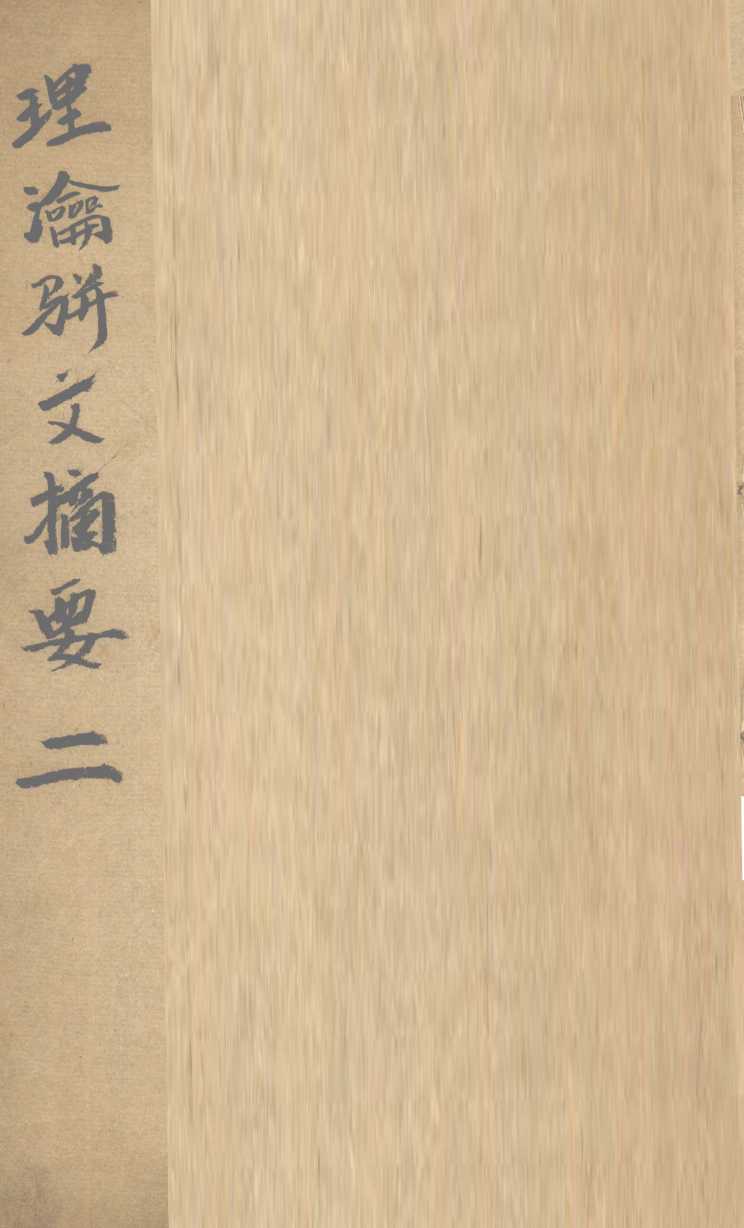 理瀹駢文摘要 二